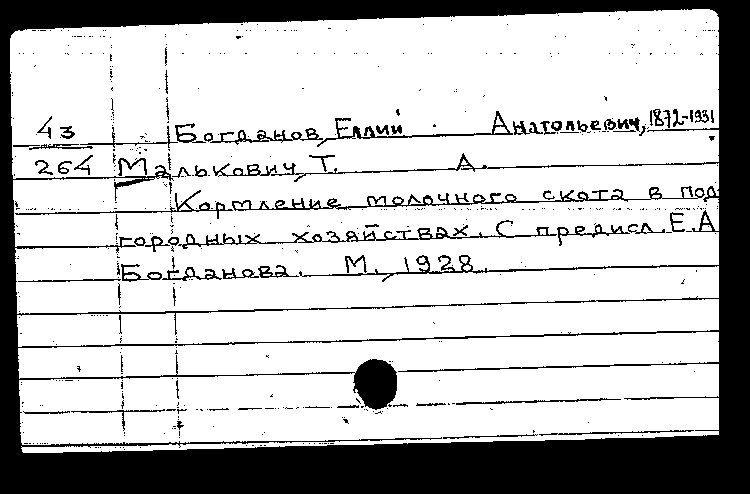 43 Богданов, Еллий Анатольевич, 1872-1931
264 Малькович, Т. А.
Кормление молочного скота в под
городных хозяйствах. С предисл. Е. А
Богданова. М., 1928.